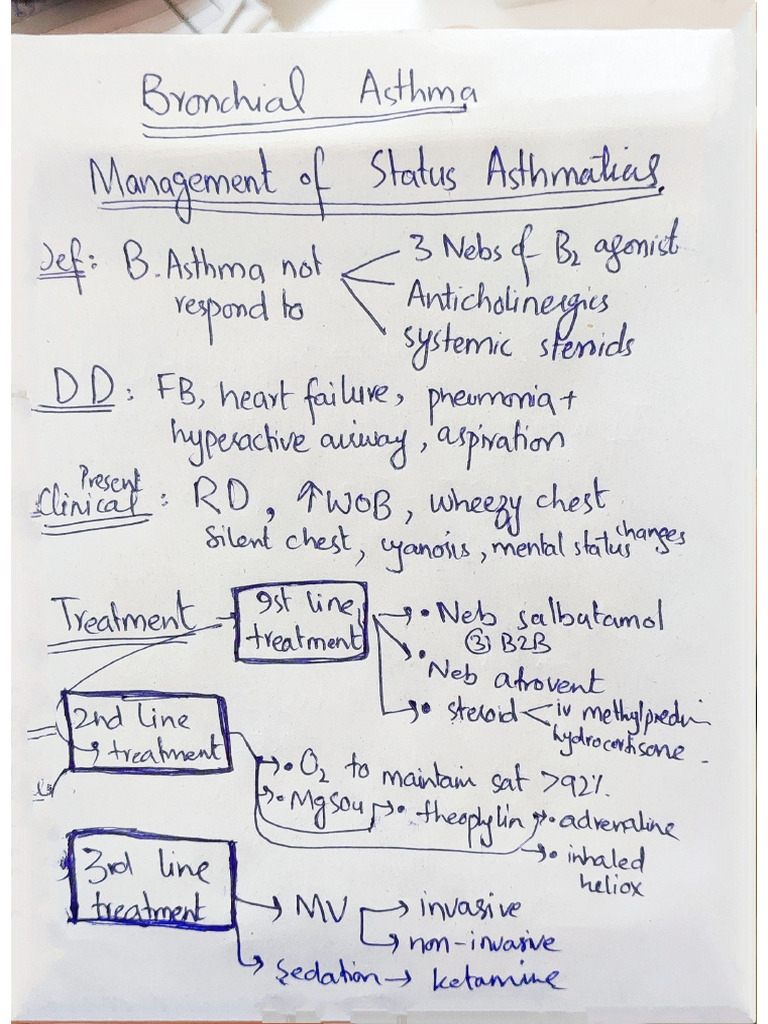 Bronchial Asthma
Management of Status Asthmaticus.
Def: B. Asthma not respond to
3 Nebs of B2 agonist
Anticholinergics
systemic steroids
DD: FB, heart failure, pneumonia +
hyperactive airway, aspiration
Clinical Present: RD, ↑WOB, wheezy chest
silent chest, cyanosis, mental status changes
Treatment
1st line
treatment
• Neb salbutamol
③ B2B
• Neb atrovent
• steroid
iv methylpredni
hydrocortisone
2nd line
treatment
• O2 to maintain sat >92%.
• Mgso4 • theophylin • adrenaline
• inhaled
heliox
3rd line
treatment
MV → invasive
→ non-invasive
Sedation → ketamine